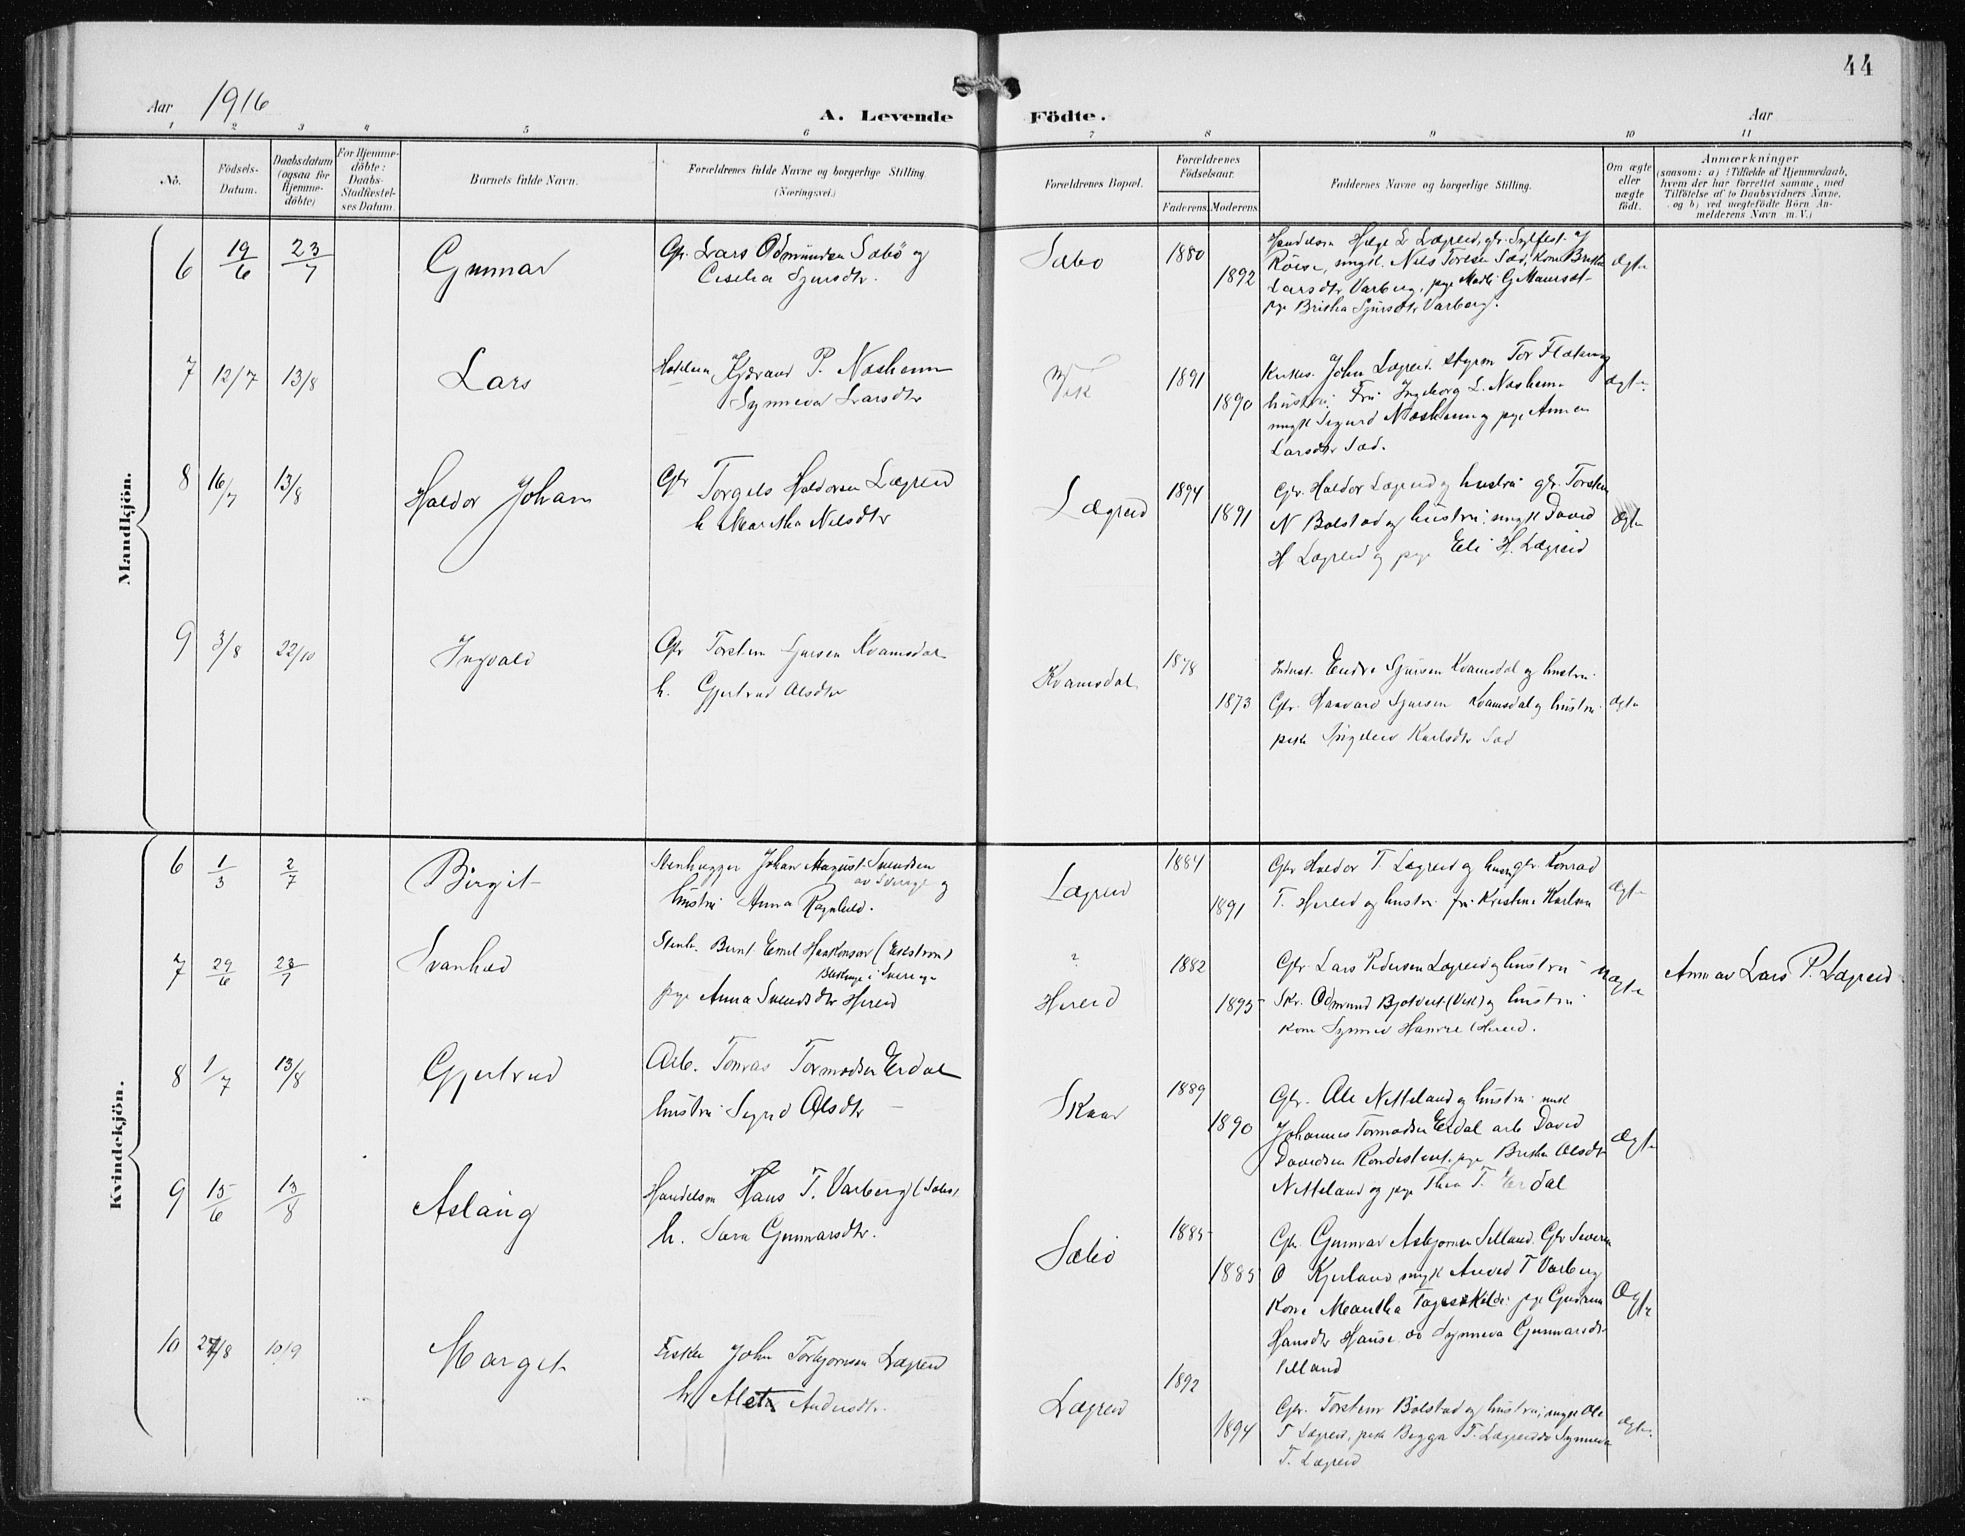 44
Aar 1916
A. Levende Födte.
Aar
1 2 3 4 5 6 7 8 9 10 11
No.
Födsels-
Datum.
Daabsdatum
(ogsaa for
Hjemme-
döbte)
For Hjemme-
döbte:
Daabs-
Stadfæstel-
ses Datum.
Barnets fulde Navn.
Forældrenes fulde Navne og borgerlige Stilling.
(Næringsvei.)
Forældrenes Bopæl.
Forældrenes
Födselsaar.
Faderens. Moderens.
Faddernes Navne og borgerlige Stilling.
Om ægte
eller
uægte
födt.
Anmærkninger
(saasom: a) i Tilfælde af Hjemmedaab,
hvem der har forrettet samme, med
Tilföielse af to Daabsvidners Navne,
og b) ved uægtefödte Börn An-
melderens Navn m. V.)
Mandkjön.
6 19/6 23/7 Gunnar
Gbr. Lars Odmundsen Sæbö og
Cecilia Sjursdtr.
Sæbö 1880 1892
Handelsm Helge L Lægreid, gbr. Sylfest
Röise, ungk. Nils Toresen Sæd, Kone Britha
Larsdtr Varberg, pige Marta G Maursæt
pge Britha Sjursdtr Varberg.
ægte
7 12/7 13/8 Lars
P. Næsheim
Synneva Larsdtr
Vik 1891 1890
John Lægreid. styrm Tor Flotun og
hustru. Fru Ingeborg L. Næsheim
ungk Sigurd Næsheim og pge Anna
Larsdtr Sæd.
ægte
8 16/7 13/8 Haldor Johan
Gbr Torgils Haldorsen Lægreid
h. Martha Nilsdtr
Lægreid 1894 1891
Gbr. Haldor Lægreid og hustru gbr. Torstein
N Bolstad og hustru, ungk David
H Lægreid og pge Eli H. Lægreid
ægte
9 3/8 22/10 Ingvald
Gbr Torstein Sjursen Kvamsdal
h. Gjertrud Olsdtr
Kvamsdal 1878 1873
Indust. Endre Sjursen Kvamsdal og hustru.
Gbr. Haavard Sjursen Kvamsdal og hustru.
pike Ingeleiv Karlsdtr Sæd
ægte
Kvindekjön.
6 1/3 2/7 Birgit
Stenhugger Johan August Svendsen
av Sverige og
hustru Anna Ragnhild.
Lægreid 1884 1891
Gbr Haldor T. Lægreid og hustru gbr. Konrad
T. Hereid og hustru. fru Kristine Karlsen
ægte
7 29/6 23/7 Svanhild
Stenh. Bernt Emil Haakonson (Ekstrøm)
Blekinge i Sverige
pge Anna Svendsdtr Hereid
?
Hereid 1882 1895
Gbr. Lars Pedersen Lægreid og hustru
Skr. Odmund Bjotveit (Vik) og hustru
Kone Synnev Hamre (Hereid.
Uægte Anm av Lars P. Lægreid
8 1/7 13/8 Gjertrud
Arb. Tomas Tormodsen Erdal
hustru Sigrid Olsdtr
Skaar 1889 1890
Gbr. Ole Nitteland og hustru. unk
Johannes Tormodsen Erdal arb David
Davidsen Rondestveit, pge Britha Olsdtr
Nitteland og pge Thea T. Erdal
Ægte
9 15/6 13/8 Aslaug
Handelsm Hans T. Varberg (Sæbö)
h. Sara Gunnarsdtr.
Sæbö 1885 1885
Gbr. Gunnar Asbjornsen Silland. Gbr Severin
O Kjerland ungk Arved T Varberg
Kone Martha Tageskilde pge Gudrun
Hansdtr Hause og Synneva Gunnarsdtr
Silland
Ægte
10 27/8 10/9 Marget
Fisker John Torbjornsen Lægreid
h Aleta Andersdtr.
Lægreid 1892 1894
Gbr. Torstein Bolstad og hustru, ungk Ole
T Lægreid, pike Begga T. Lægreid Synneva
T. Lægreid
ægte.